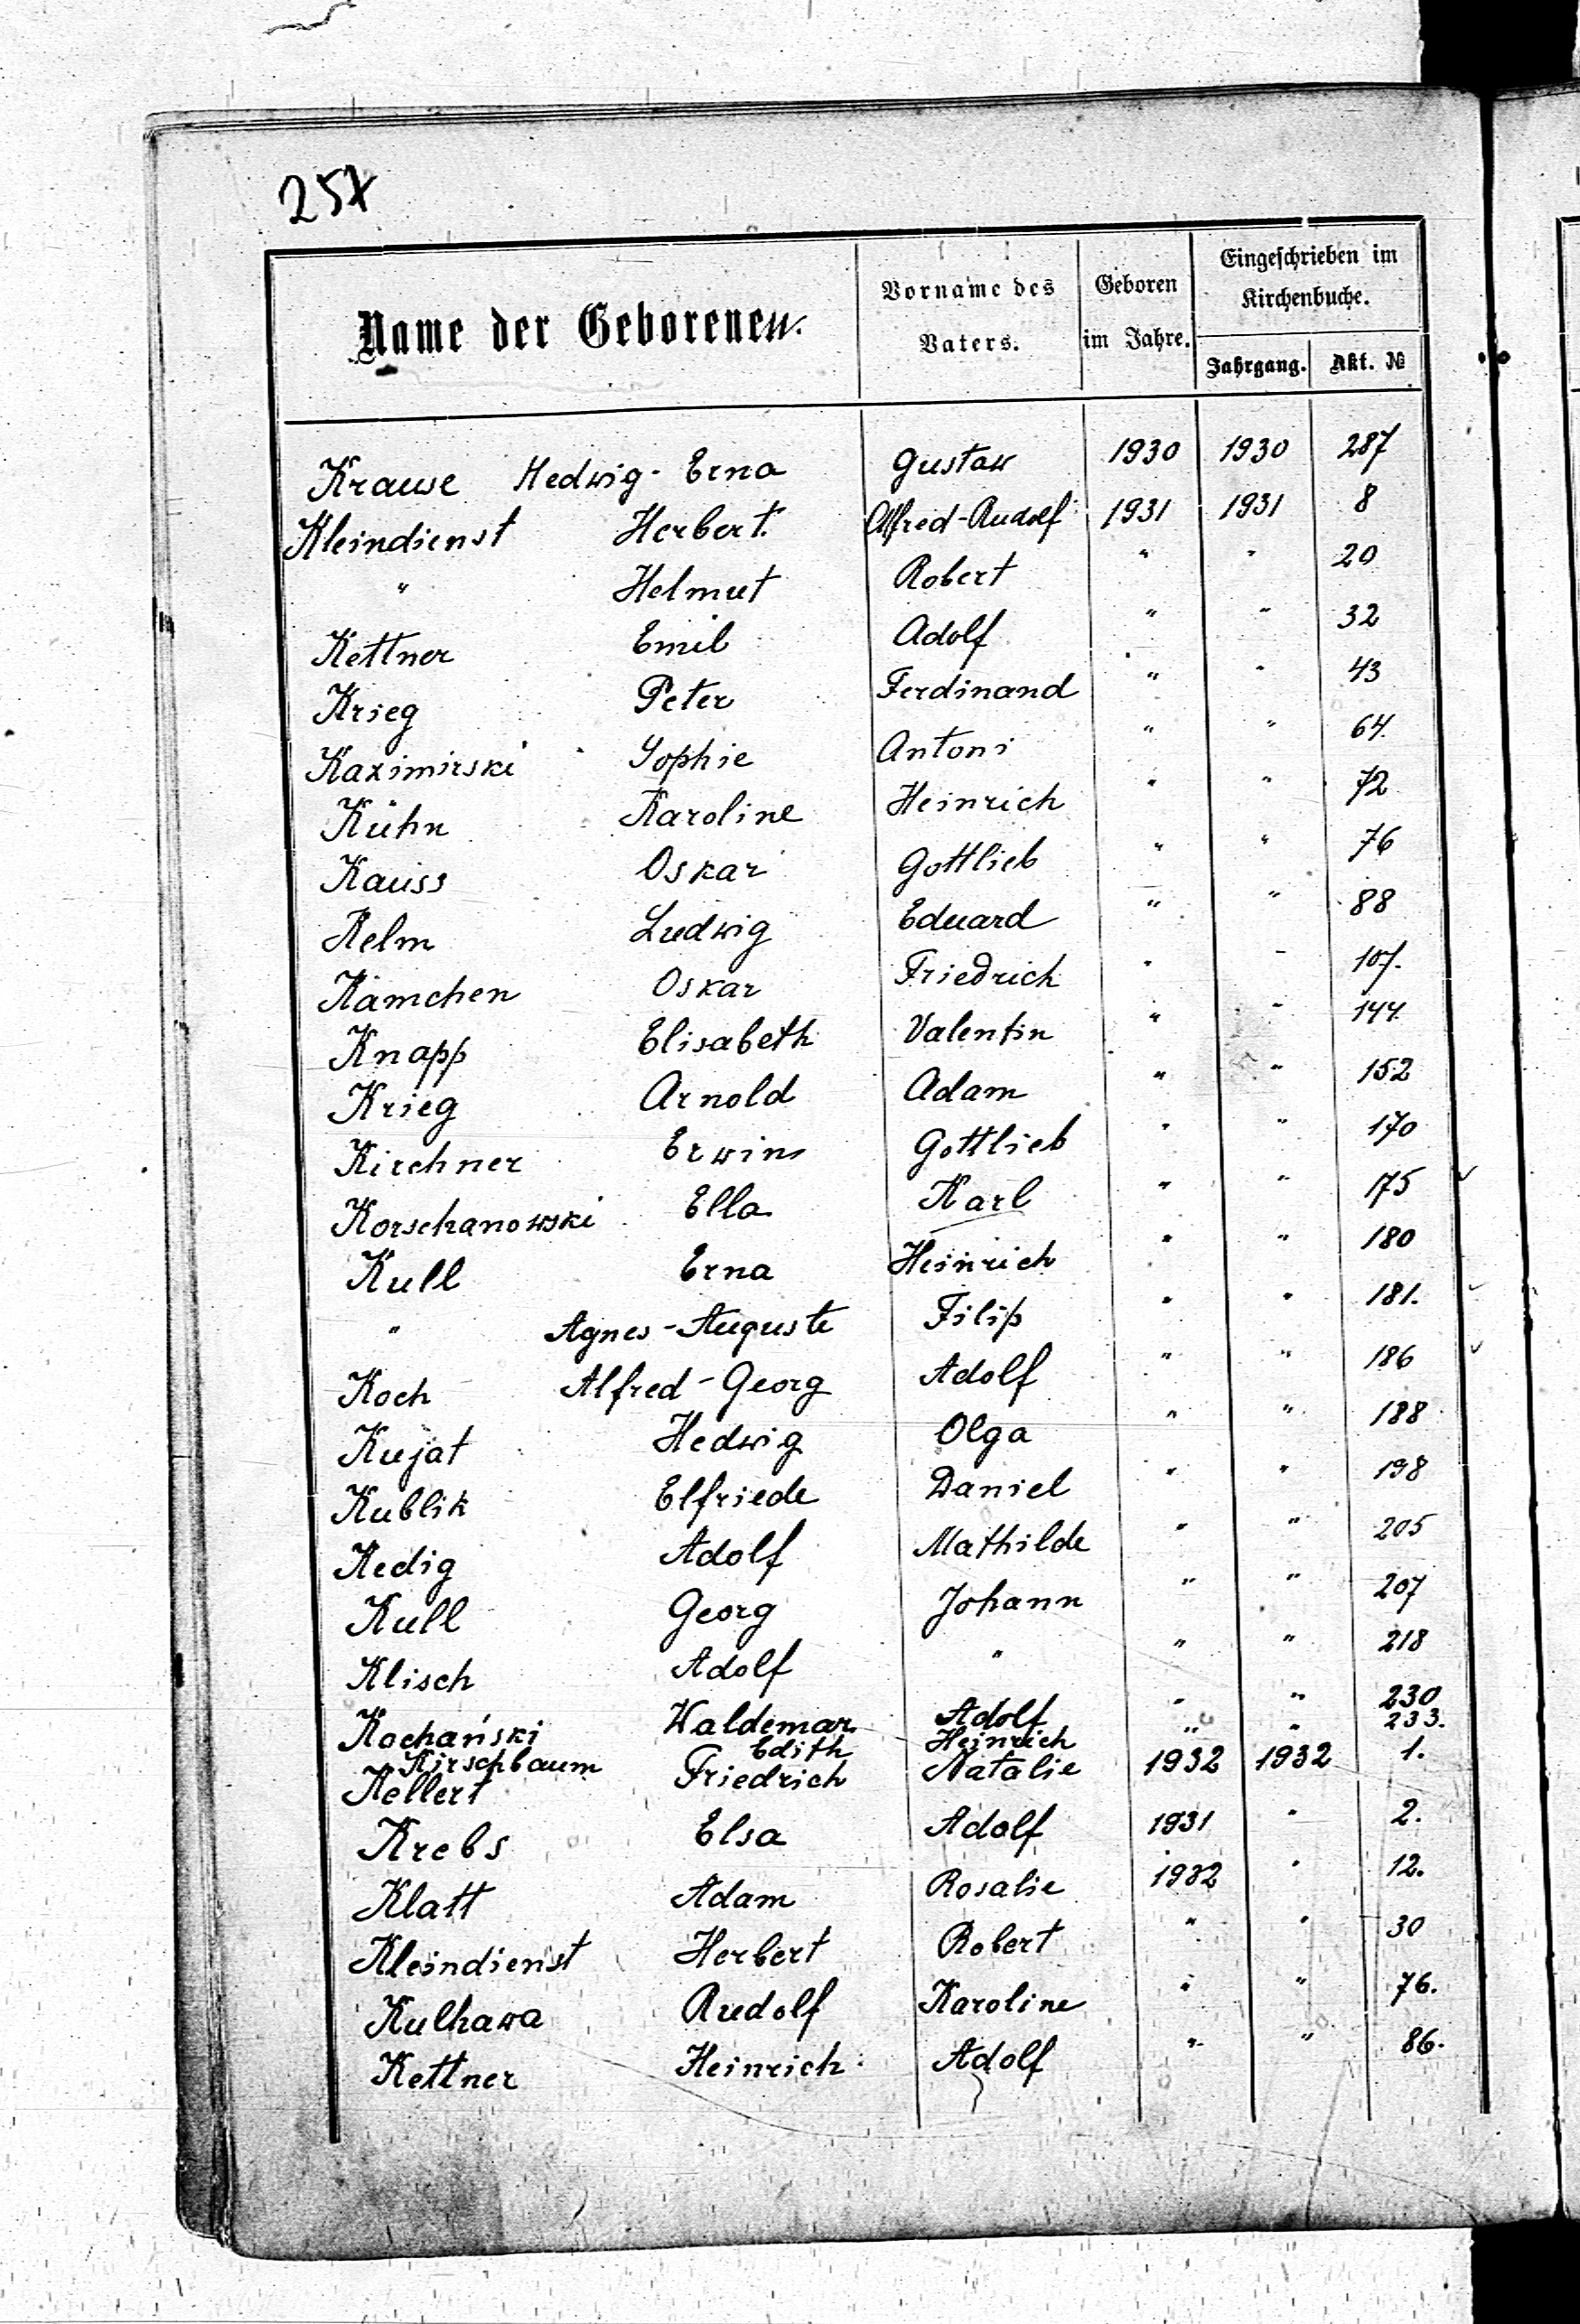 257
Name der Geborenen.
Vorname des Vaters.
Geboren im Jahre.
Eingeschrieben im Kirchenbuche.
Jahrgang. Akt. №
Krause Hedwig-Erna Gustaw 1930 1930 287
Kleindienst Herbert Alfred-Rudolf 1931 1931 8
" Helmut Robert " " 20
Kettner Emil Adolf " " 32
Krieg Peter Ferdinand " " 43
Kazimirski Sophie Antoni " " 64
Kühn Karoline Heinrich " " 72
Kauss Oskar Gottlieb " " 76
Kelm Ludwig Eduard " " 88
Kämchen Oskar Friedrich " " 107.
Knapp Elisabeth Valentin " " 144
Krieg Arnold Adam " " 152
Kirchner Erwin Gottlieb " " 170
Korschanowski Ella Karl " " 175
Kull Erna Heinrich " " 180
" Agnes-Auguste Filip " " 181.
Koch Alfred-Georg Adolf " " 186
Kujat Hedwig Olga " " 188
Kublik Elfriede Daniel " " 198
Kedig Adolf Mathilde " " 205
Kull Georg Johann " " 207
Klisch Adolf " " " 218
Kochański Waldemar Adolf " " 230
Kirschbaum Edith Heinrich " " 233.
Kellert Friedrich Natalie 1932 1932 1.
Krebs Elsa Adolf 1931 " 2.
Klatt Adam Rosalie 1932 " 12.
Kleindienst Herbert Robert " " 30
Kulhawa Rudolf Karoline " " 76.
Kettner Heinrich Adolf " " 86.